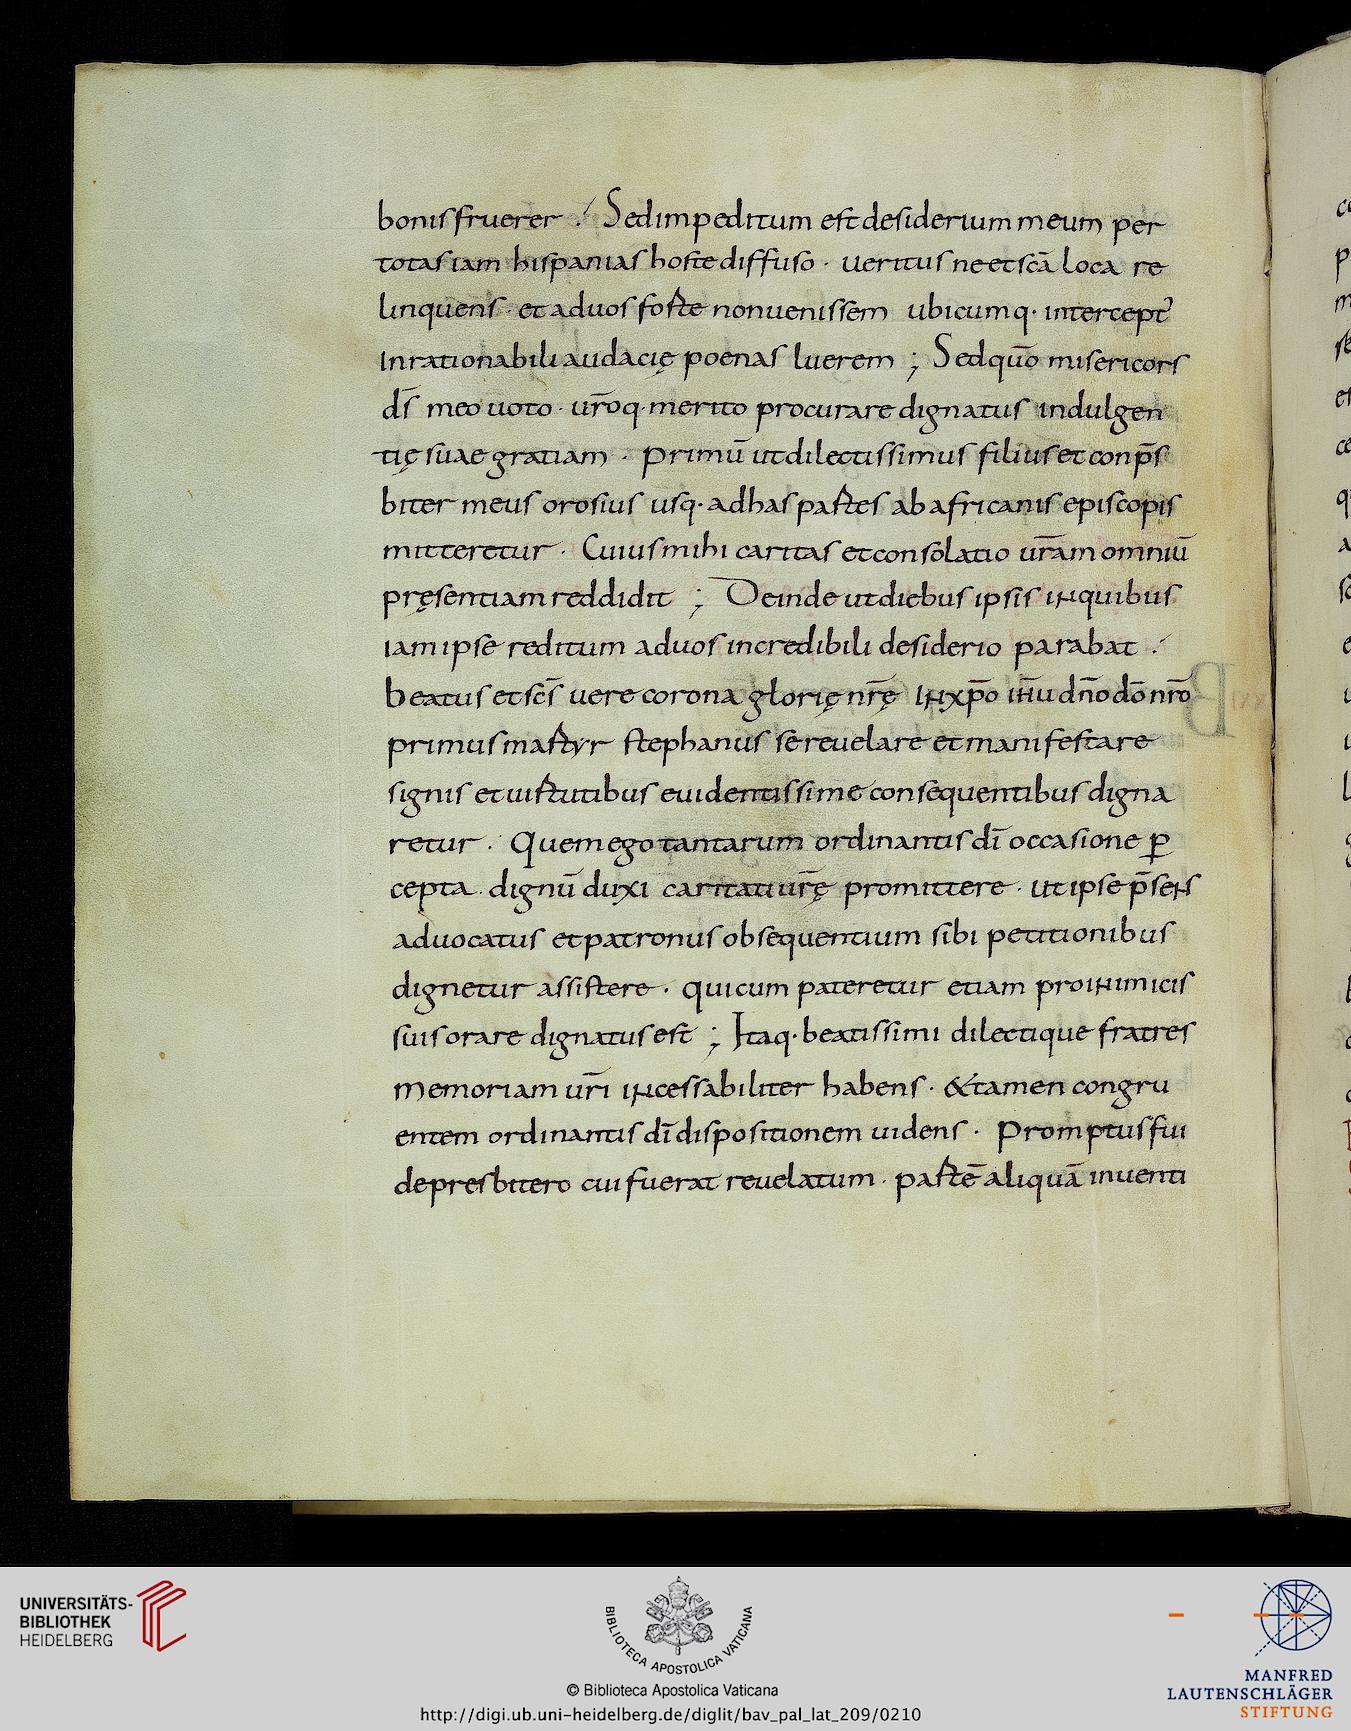 bonis fruerer ./ Sed impeditum est desiderium meum per
totas iam hispanias hoste diffuso · ueritus ne et scā loca re
linquens · et ad uos forte non uenissem ubicumq· intercept᾽
Inrationabili audacię poenas luerem ; Sed quō misericors
ds̄ meo uoto · ur̄oq· merito procurare dignatus indulgen
tię suae gratiam · primū ut dilectissimus filius et conp̄s
biter meus orosius usq· ad has partes ab africanis episcopis
mitteretur · Cuius mihi caritas et consolatio ur̄am omniū
pręsentiam reddidit ; Deinde ut diebus ipsis in quibus
iam ipse reditum ad uos incredibili desiderio parabat ./
beatus et scs̄ uere corona glorię nr̄ę IN xp̄o ih̄u dn̄o dō nr̄o
primus martyr stephanus se reuelare et manifestare
signis et uirtutibus euidentissime consequentibus digna
retur · Quem ego tantarum ordinantis dī occasione ꝑ
cepta · dignū duxi caritati ur̄ę promittere · ut ipse p̄sens
aduocatus et patronus obsequentium sibi petitionibus
dignetur assistere · qui cum pateretur etiam pro inimicis
suis orare dignatus est ; Itaq· beatissimi dilectique fratres
memoriam ur̄i incessabiliter habens · & tamen congru
entem ordinantis dī dispositionem uidens · promptus fui
de presbitero cui fuerat reuelatum · partē aliquā inuenti
UNIVERSITÄTS-
BIBLIOTHEK
HEIDELBERG
BIBLIOTECA APOSTOLICA VATICANA
© Biblioteca Apostolica Vaticana
http://digi.ub.uni-heidelberg.de/diglit/bav_pal_lat_209/0210
MANFRED
LAUTENSCHLÄGER
STIFTUNG